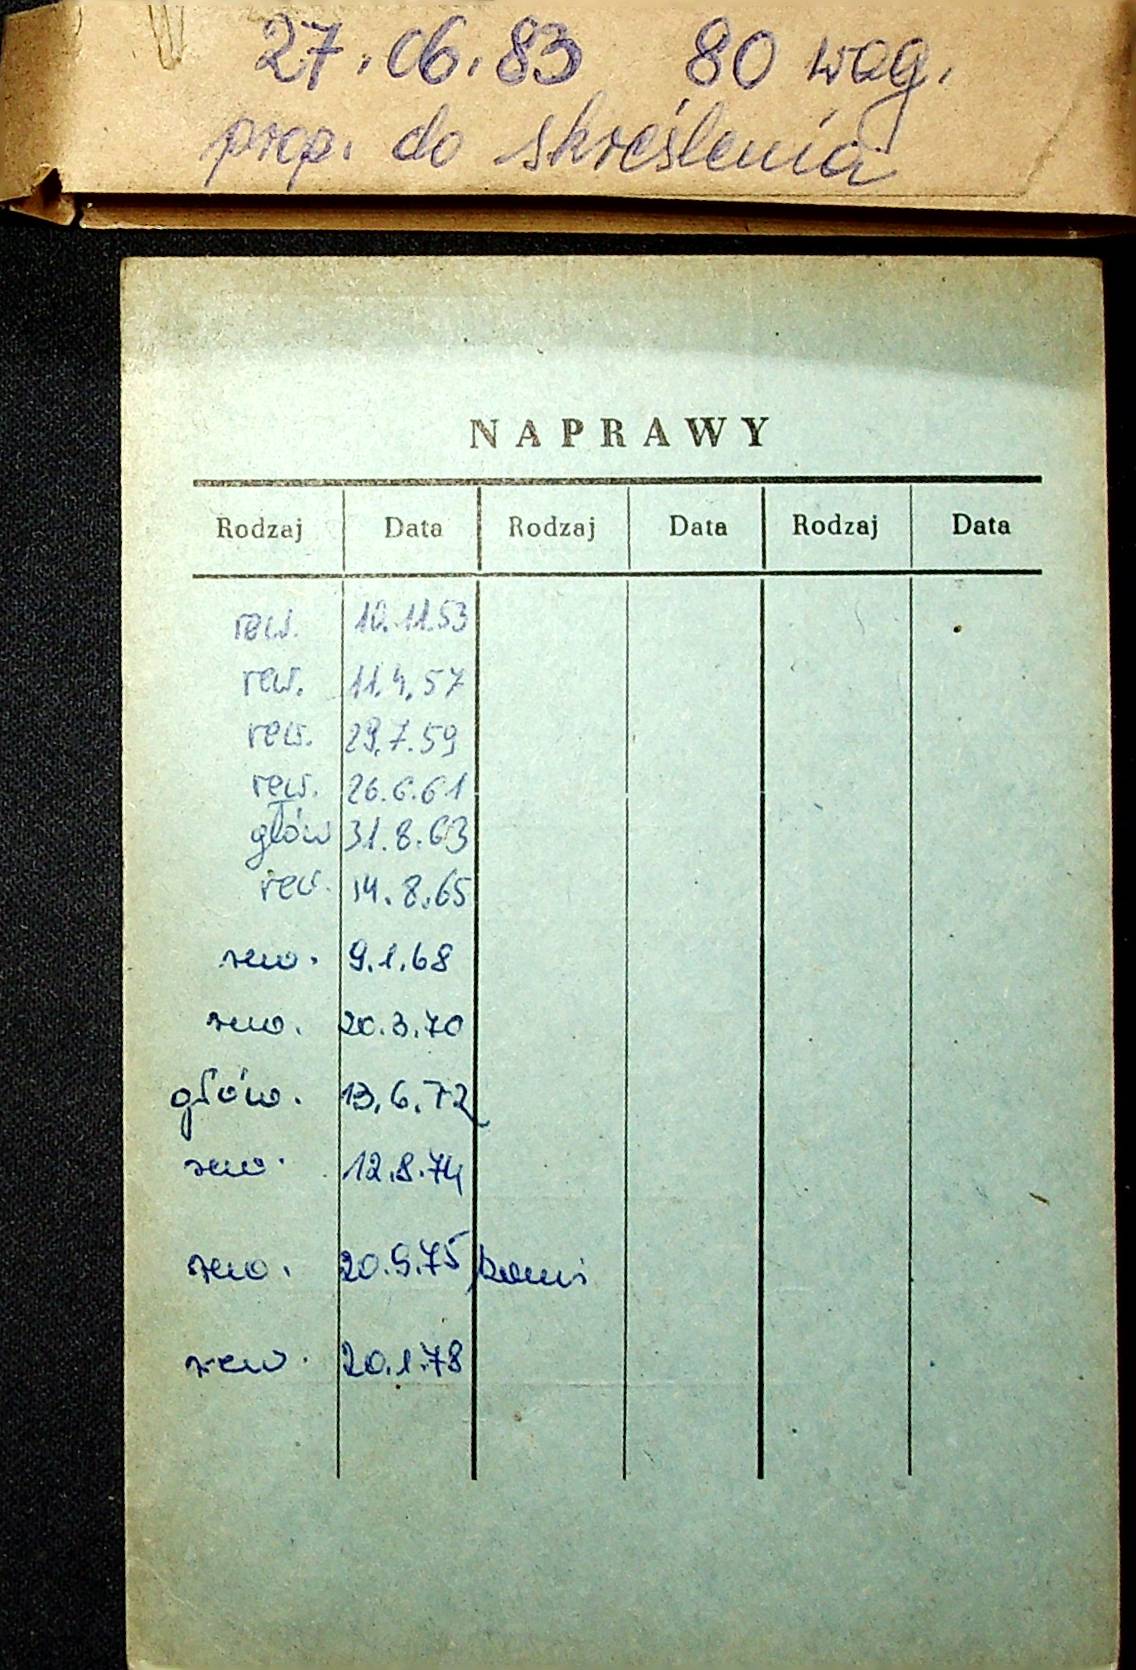 27.06.83 80 wag.
prop. do skreślenia
NAPRAWY
Rodzaj Data Rodzaj Data Rodzaj Data
rew. 10.11.53
rew. 11.4.57
rew. 29.7.59
rew. 26.6.61
głów 31.8.63
rew. 14.8.65
rew. 9.1.68
rew. 20.3.70
głów. 13.6.72
rew. 12.8.74
rew. 20.9.75
rew. 20.1.78